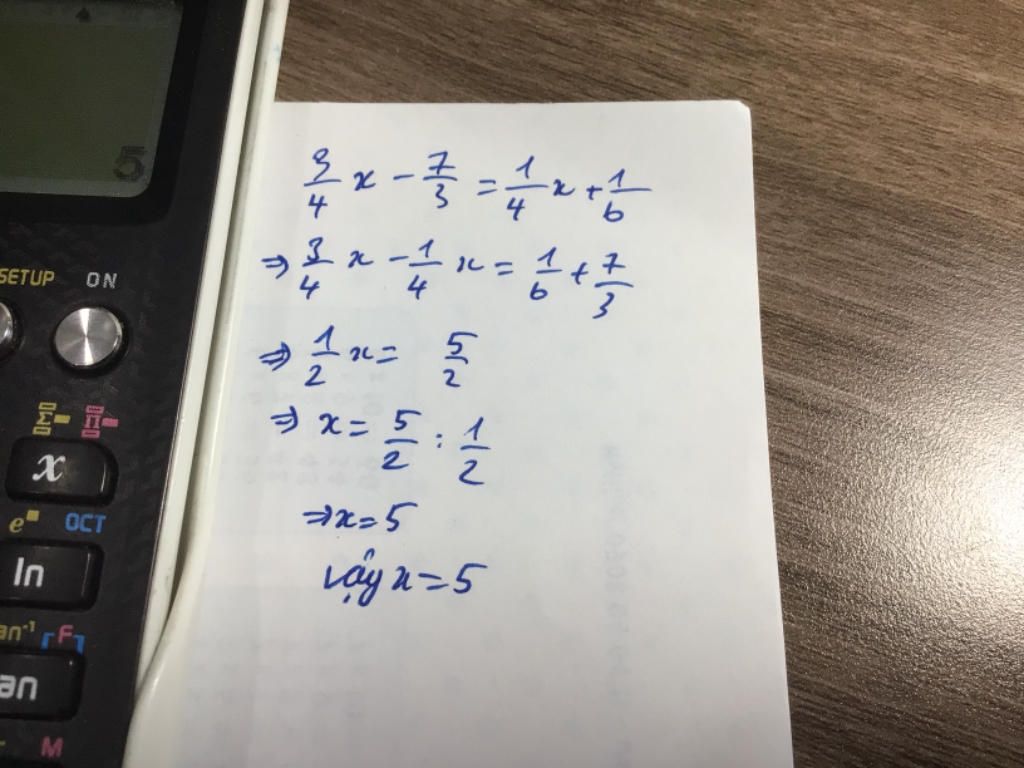 5
SETUP ON
Σ Π
x
e■ OCT
ln
an⁻¹ F
an
M
3/4 x - 7/3 = 1/4 x + 1/6
⇒ 3/4 x - 1/4 x = 1/6 + 7/3
⇒ 1/2 x = 5/2
⇒ x = 5/2 : 1/2
⇒ x = 5
Vậy x = 5